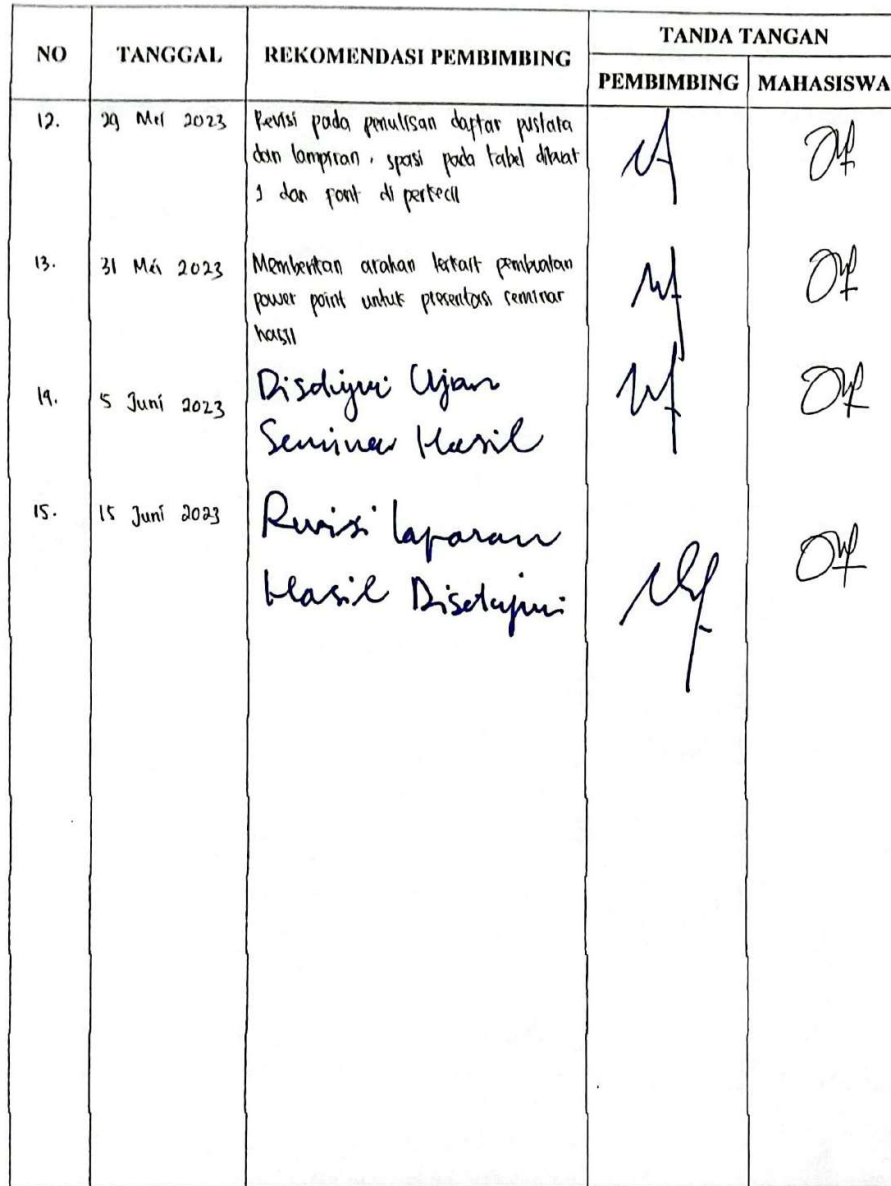 NO TANGGAL REKOMENDASI PEMBIMBING TANDA TANGAN
PEMBIMBING MAHASISWA
12. 29 Mei 2023 Revisi pada penulisan daftar pustaka
dan lampiran, spasi pada tabel dibuat
1 dan font di perkecil
13. 31 Mei 2023 Memberikan arahan terkait pembuatan
power point untuk presentasi seminar
hasil
14. 5 Juni 2023 Disetujui Ujian
Seminar Hasil
15. 15 Juni 2023 Revisi laporan
Hasil Disetujui